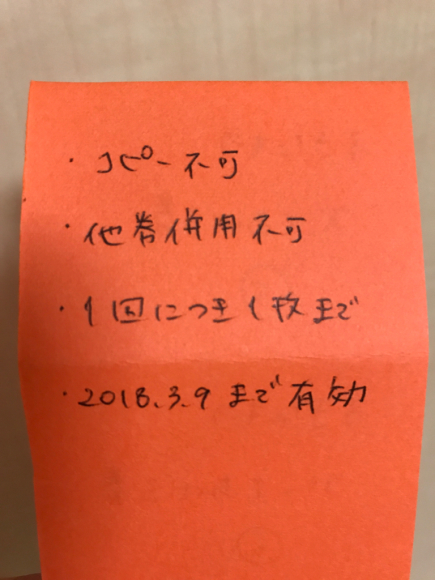 ・コピー不可
・他券併用不可
・1回につき1枚まで
・2018.3.9まで有効